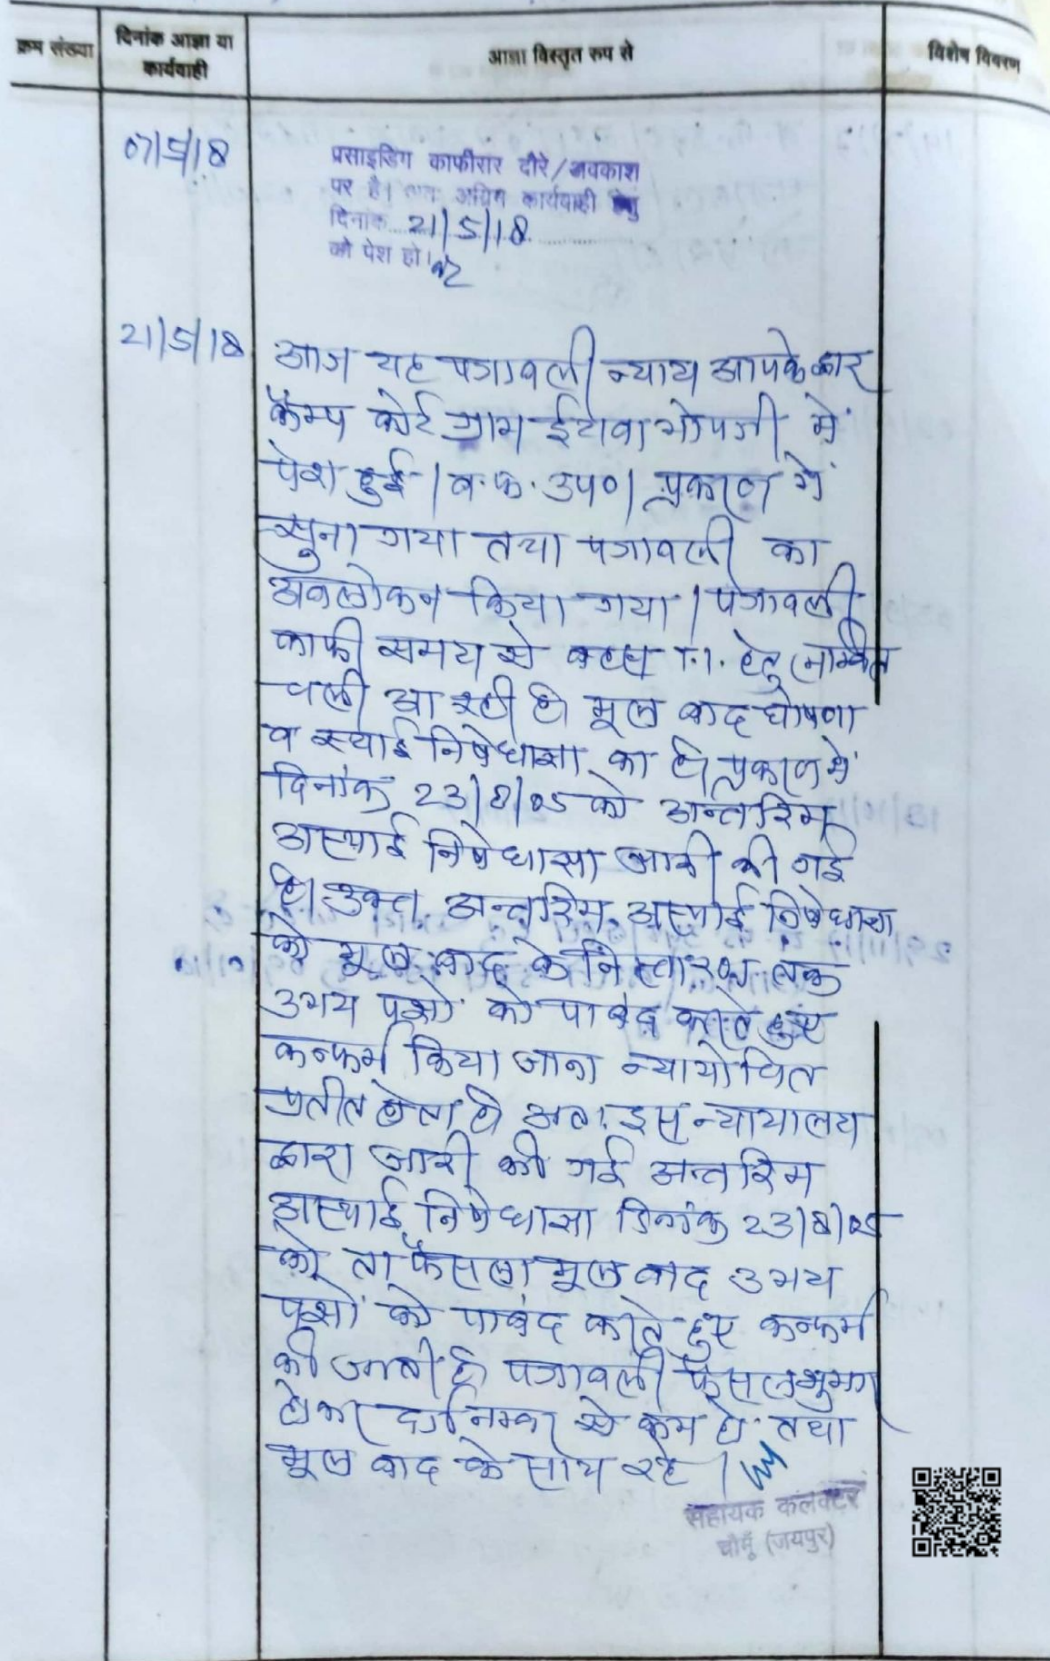 क्रम संख्या
दिनांक आज्ञा या
कार्यवाही
आज्ञा विस्तृत रुप से
विशेष विवरण
07/5/18
प्रसाइडिंग काफीसर दौरे/अवकाश
पर है। अतः अग्रिम कार्यवाही हेतु
दिनांक 21/5/18
को पेश हो।
21/5/18
आज यह पत्रावली न्याय आपके द्वार
कैम्प कोर्ट ग्राम ईटावा भोपजी में
पेश हुई। व.फ. उप०। प्रकरण में
सुना गया तथा पत्रावली का
अवलोकन किया गया। पत्रावली
काफी समय से बहस T.I. हेतु लम्बित
चली आ रही है। मूल वाद घोषणा
व स्थाई निषेधाज्ञा का है। प्रकरण में
दिनांक 23/8/05 को अन्तरिम
अस्थाई निषेधाज्ञा जारी की गई
है। उक्त अन्तरिम अस्थाई निषेधाज्ञा
को मूल वाद के निस्तारण तक
उभय पक्षों को पाबंद करते हुए
कन्फर्म किया जाना न्यायोचित
प्रतीत होता है। अतः इस न्यायालय
द्वारा जारी की गई अन्तरिम
अस्थाई निषेधाज्ञा दिनांक 23/8/05
को ता फैसला मूल वाद उभय
पक्षों को पाबंद करते हुए कन्फर्म
की जाती है। पत्रावली फैसलशुमार
होकर नम्बर से कम हो तथा
मूल वाद के साथ रहे।
सहायक कलक्टर
चौमूँ (जयपुर)